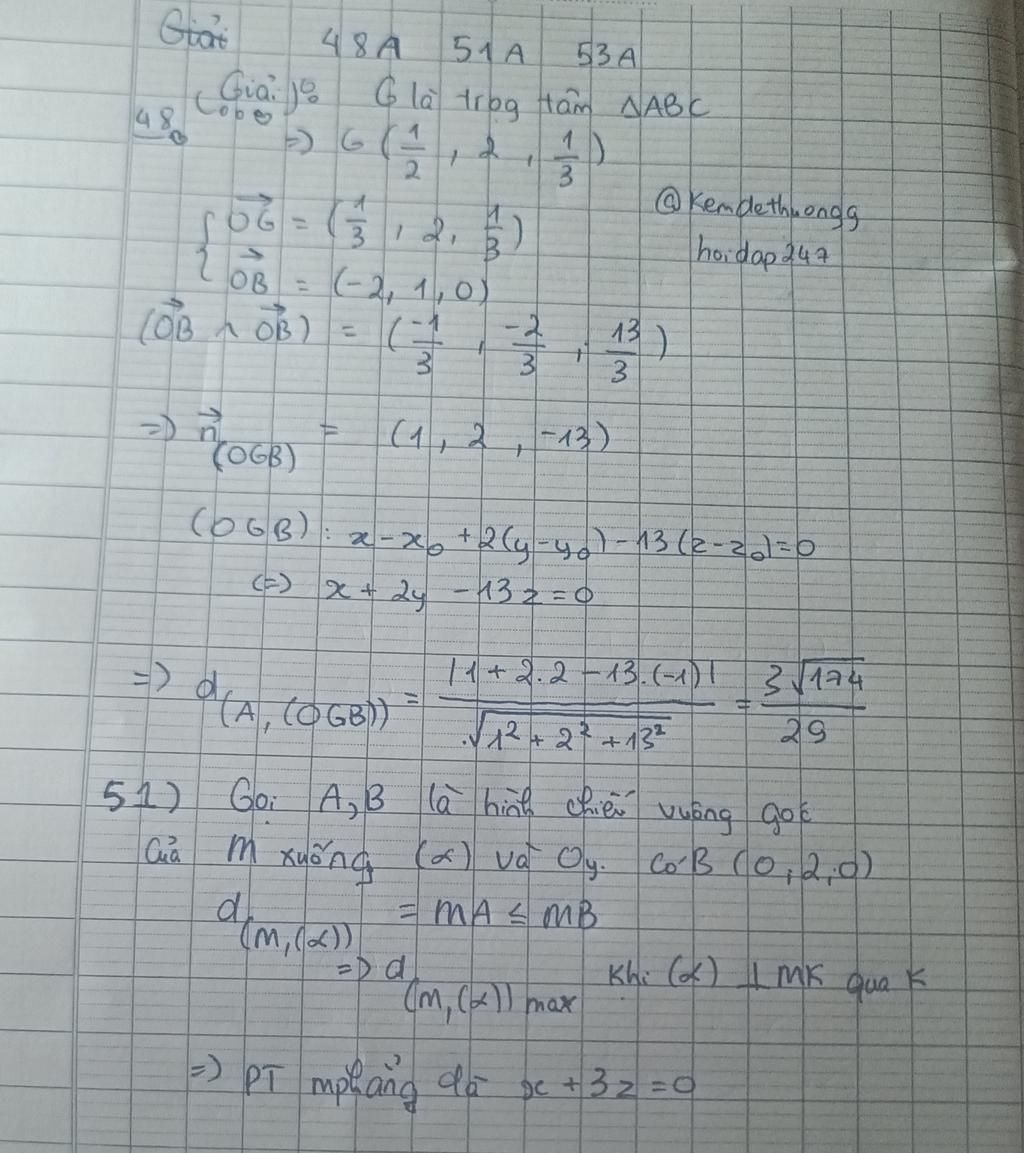 Giải 48A 51A 53A
(Giải)
48. G là trọg tâm ΔABC
=> G (1/2, 2, 1/3)
@Kemdethuongg
hoidap247
{ OG→ = (1/3, 2, 1/3)
{ OB→ = (-2, 1, 0)
(OB→ ∧ OB→) = (-1/3, -2/3, 13/3)
=> n→(OGB) = (1, 2, -13)
(OGB): x - x₀ + 2(y - y₀) - 13(z - z₀) = 0
(=) x + 2y - 13z = 0
=> d(A, (OGB)) = |1 + 2.2 - 13.(-1)| / √(1² + 2² + 13²) = 3√174 / 29
51) Gọi A, B là hình chiếu vuông góc
của M xuống (α) và Oy. Có B (0, 2, 0)
d(M, (α)) = MA ≤ MB
=> d(M, (α)) max khi (α) ⊥ MK qua K
=> PT mphẳng là x + 3z = 0